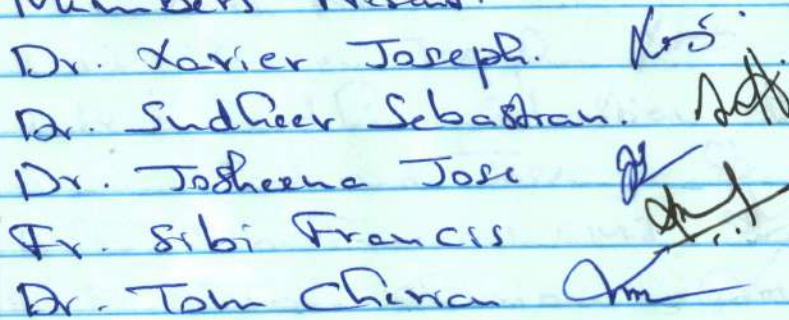 Members Present:
Dr. Xavier Joseph.
Dr. Sudheer Sebastian.
Dr. Josheena Jose
Fr. Sibi Francis
Dr. Tom Cherian